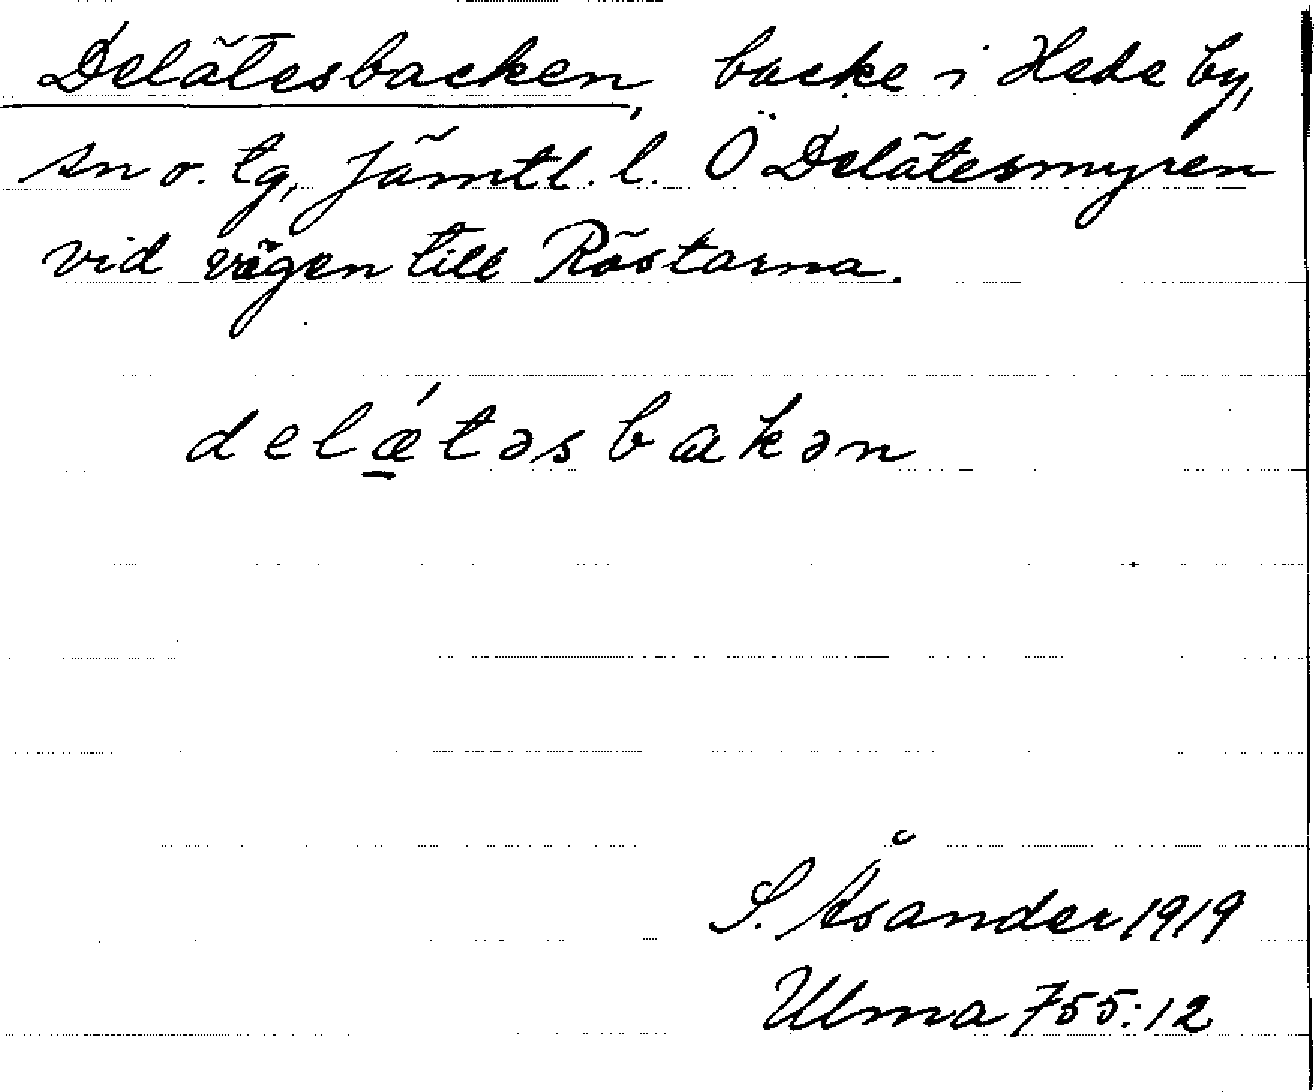 Delätesbacken, backe i Hede by,
sn o. tg, Jämtl. l. Ö Delätesmyren
vid vägen till Röstarna.
delǽ̱təsbakən
S. Åsander 1919
Ulma 755:12